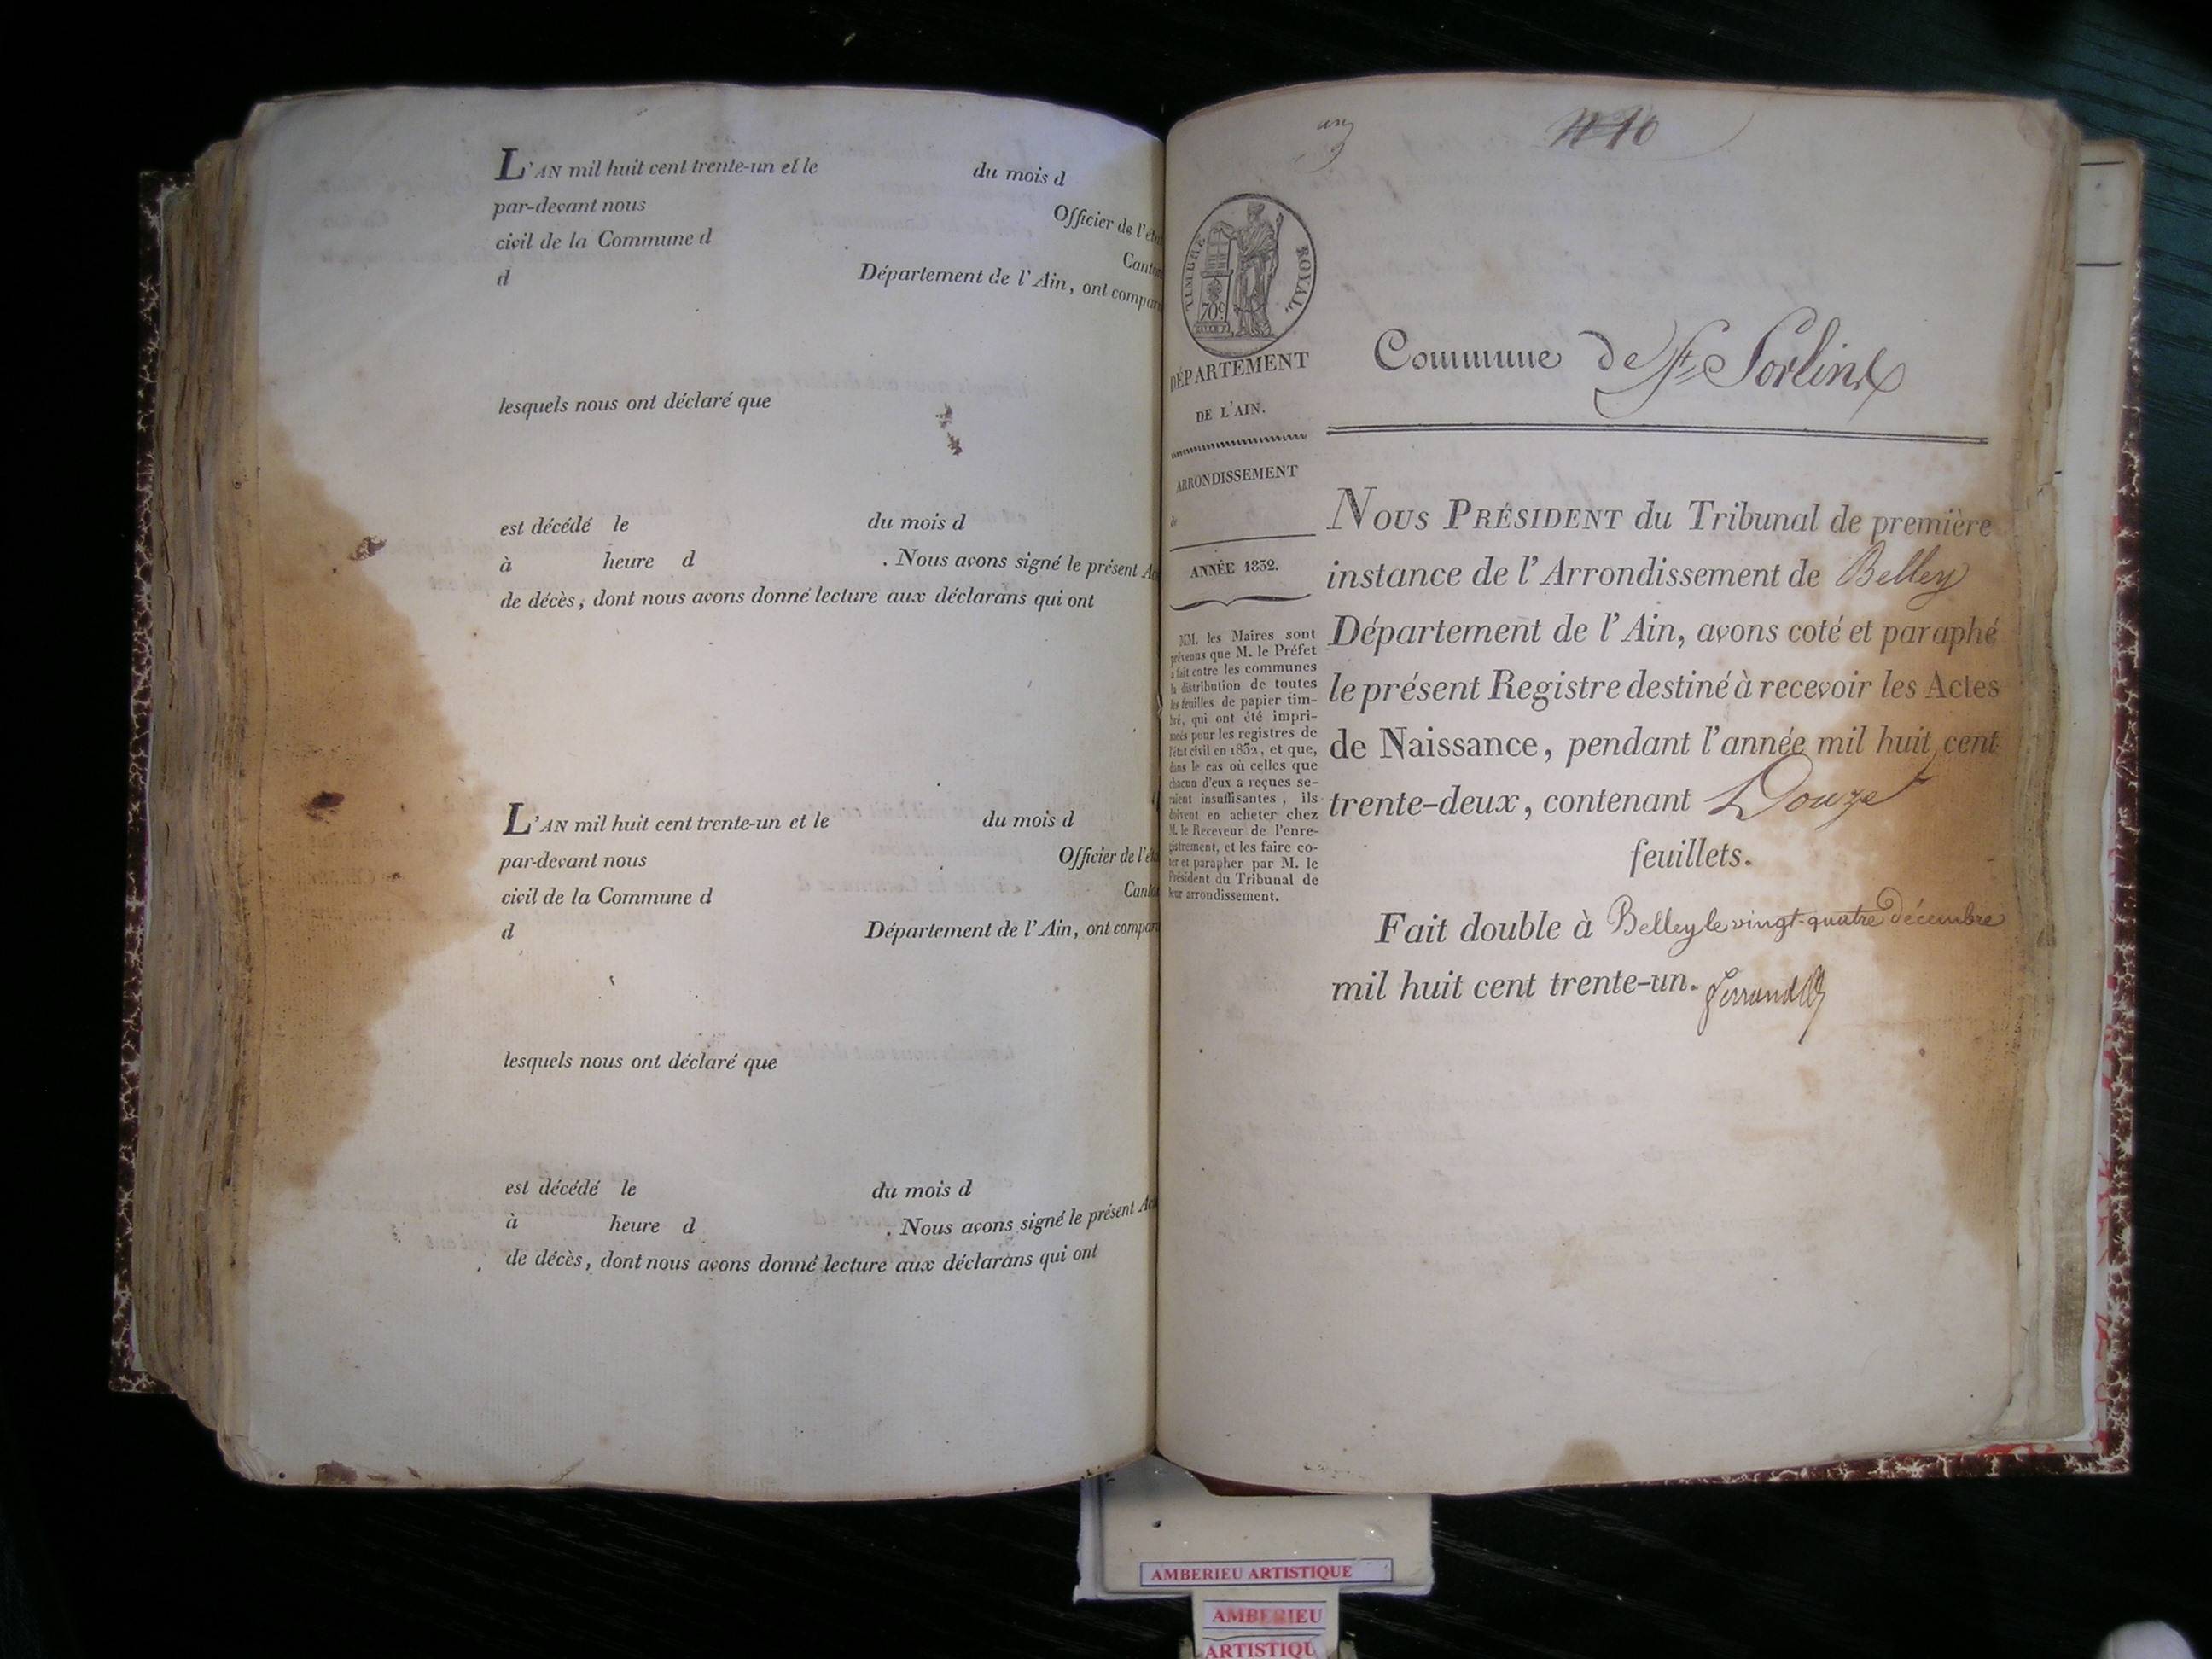 L'AN mil huit cent trente-un et le du mois d
par-devant nous Officier de l'éta
civil de la Commune d Canton
d Département de l'Ain, ont compar
lesquels nous ont déclaré que
est décédé le du mois d
à heure d . Nous avons signé le présent Ac
de décès, dont nous avons donné lecture aux déclarans qui ont
L'AN mil huit cent trente-un et le du mois d
par-devant nous Officier de l'éta
civil de la Commune d Canton
d Département de l'Ain, ont compar
lesquels nous ont déclaré que
est décédé le du mois d
à heure d . Nous avons signé le présent Act
de décès, dont nous avons donné lecture aux déclarans qui ont
TIMBRE ROYAL
70c
DÉPARTEMENT
DE L'AIN.
ARRONDISSEMENT
de
ANNÉE 1832.
MM. les Maires sont
prévenus que M. le Préfet
a fait entre les communes
la distribution de toutes
les feuilles de papier tim-
bré, qui ont été impri-
mées pour les registres de
l'état civil en 1832, et que,
dans le cas où celles que
chacun d'eux a reçues se-
raient insuffisantes, ils
doivent en acheter chez
M. le Receveur de l'enre-
gistrement, et les faire co-
ter et parapher par M. le
Président du Tribunal de
leur arrondissement.
Commune de St Sorlin
NOUS PRÉSIDENT du Tribunal de première
instance de l'Arrondissement de Belley
Département de l'Ain, avons coté et paraphé
le présent Registre destiné à recevoir les Actes
de Naissance, pendant l'année mil huit cent
trente-deux, contenant Douze
feuillets.
Fait double à Belley le vingt-quatre décembre
mil huit cent trente-un. Ferrand
AMBERIEU ARTISTIQUE
AMBERIEU
ARTISTIQU